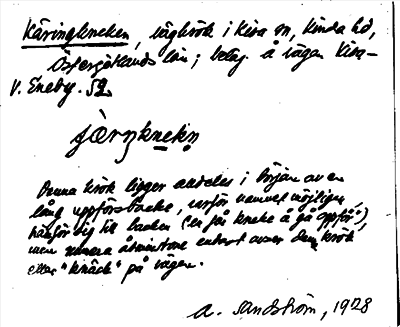 Käringkneken, vägkrök i Kisa sn, Kinda hd,
Östergötlands län; beläg. å vägen Kisa-
V. Eneby. 52.
Denna krök ligger alldeles i början av en
lång uppförsbacke, varför namnet möjligen
hänför sig till backen ("en får kneke å gå oppför"),
men numera åtminstone entast avser den krök
eller "knäck" på vägen.
A. Sandström, 1928